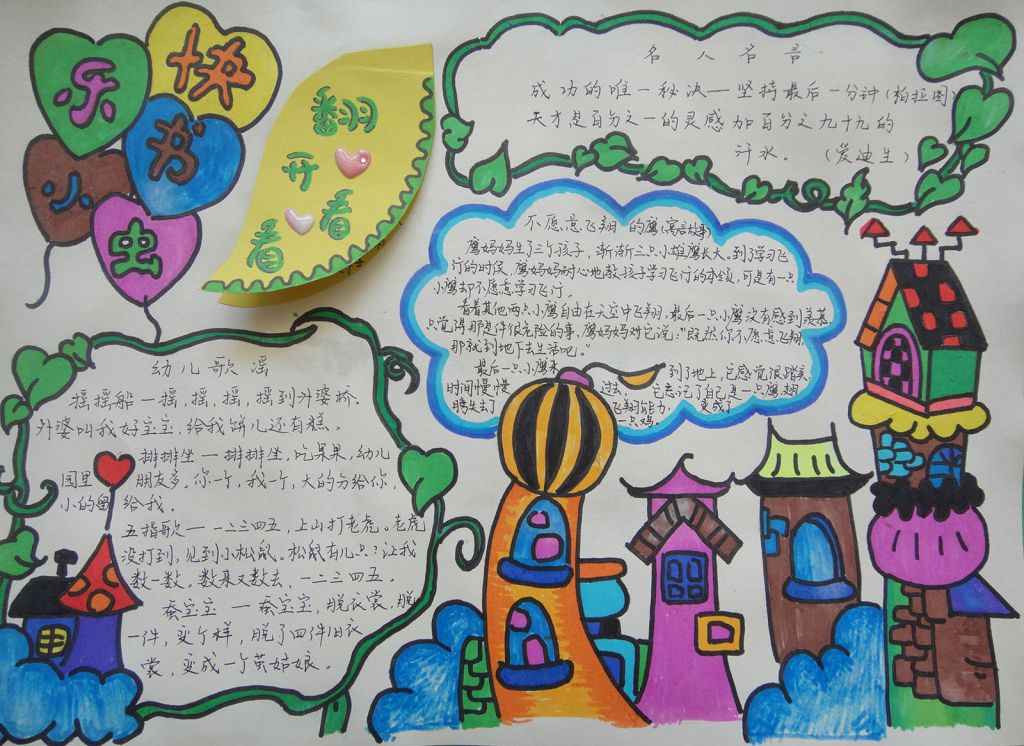 快
乐
书
小
虫
翻
开
看
看
名人名言
成功的唯一秘诀—坚持最后一分钟(柏拉图)
天才是百分之一的灵感加百分之九十九的
汗水。(爱迪生)
不愿意飞翔的鹰(寓言故事)
鹰妈妈生了三个孩子,渐渐三只小雄鹰长大。到了学习飞
行的时候,鹰妈妈耐心地教孩子学习飞行的本领,可是有一只
小鹰却不愿意学习飞行。
看着其他两只小鹰自由在天空中飞翔,最后一只小鹰没有感到羡慕,
只觉得那是件很危险的事,鹰妈妈对它说:“既然你不愿意飞翔,
那就到地下去生活吧。”
最后一只小鹰来到了地上,它感觉很踏实,
时间慢慢过去,它忘记了自己是一只鹰,翅
膀失去了飞翔能力,变成了
一只鸡。
幼儿歌谣
摇摇船—摇,摇,摇,摇到外婆桥.
外婆叫我好宝宝,给我饼儿还有糕.
排排坐—排排坐,吃果果,幼儿
园里朋友多,你一个,我一个,大的分给你,
小的留给我.
五指歌—一二三四五,上山打老虎。老虎
没打到,见到小松鼠。松鼠有几只?让我
数一数。数来又数去,一二三四五。
蚕宝宝—蚕宝宝,脱衣裳,脱
一件,变个样,脱了四件旧衣
裳,变成一个茧姑娘。